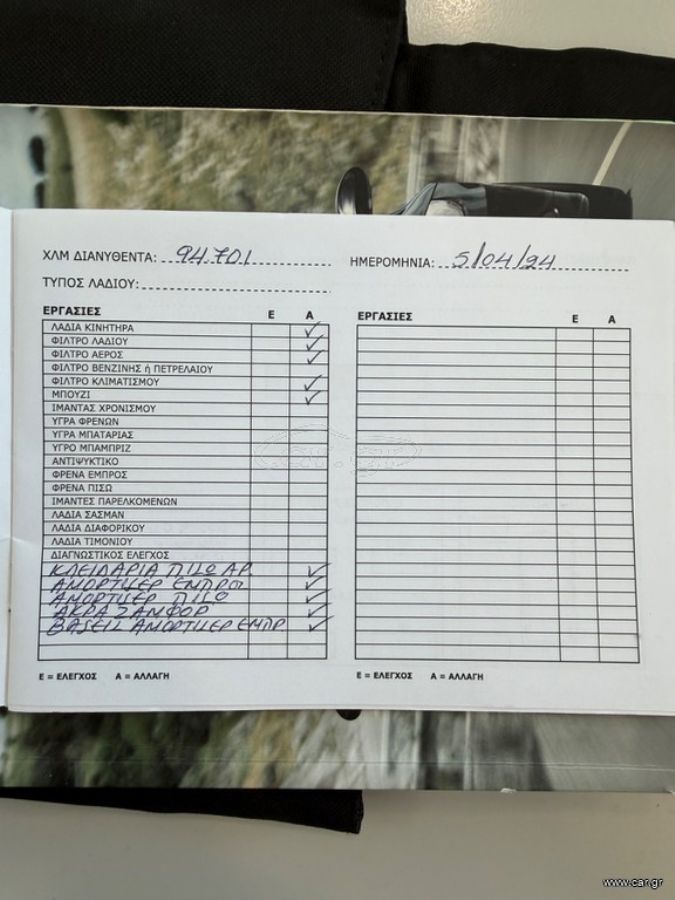 ΧΛΜ ΔΙΑΝΥΘΕΝΤΑ: 94701
ΗΜΕΡΟΜΗΝΙΑ: 5/04/24
ΤΥΠΟΣ ΛΑΔΙΟΥ:
ΕΡΓΑΣΙΕΣ Ε Α
ΛΑΔΙΑ ΚΙΝΗΤΗΡΑ ✓
ΦΙΛΤΡΟ ΛΑΔΙΟΥ ✓
ΦΙΛΤΡΟ ΑΕΡΟΣ ✓
ΦΙΛΤΡΟ ΒΕΝΖΙΝΗΣ ή ΠΕΤΡΕΛΑΙΟΥ
ΦΙΛΤΡΟ ΚΛΙΜΑΤΙΣΜΟΥ ✓
ΜΠΟΥΖΙ ✓
ΙΜΑΝΤΑΣ ΧΡΟΝΙΣΜΟΥ
ΥΓΡΑ ΦΡΕΝΩΝ
ΥΓΡΑ ΜΠΑΤΑΡΙΑΣ
ΥΓΡΟ ΜΠΑΜΠΡΙΖ
ΑΝΤΙΨΥΚΤΙΚΟ
ΦΡΕΝΑ ΕΜΠΡΟΣ
ΦΡΕΝΑ ΠΙΣΩ
ΙΜΑΝΤΕΣ ΠΑΡΕΛΚΟΜΕΝΩΝ
ΛΑΔΙΑ ΣΑΣΜΑΝ
ΛΑΔΙΑ ΔΙΑΦΟΡΙΚΟΥ
ΛΑΔΙΑ ΤΙΜΟΝΙΟΥ
ΔΙΑΓΝΩΣΤΙΚΟΣ ΕΛΕΓΧΟΣ
ΚΛΕΙΔΑΡΙΑ ΠΙΣΩ ΑΡ. ✓
ΑΜΟΡΤΙΣΕΡ ΕΜΠΡΟΣ ✓
ΑΜΟΡΤΙΣΕΡ ΠΙΣΩ ✓
ΑΚΡΑ ΖΑΜΦΟΡ ✓
ΒΑΣΕΙΣ ΑΜΟΡΤΙΣΕΡ ΕΜΠΡ. ✓
Ε = ΕΛΕΓΧΟΣ Α = ΑΛΛΑΓΗ
ΕΡΓΑΣΙΕΣ Ε Α
Ε = ΕΛΕΓΧΟΣ Α = ΑΛΛΑΓΗ
car.gr
www.car.gr